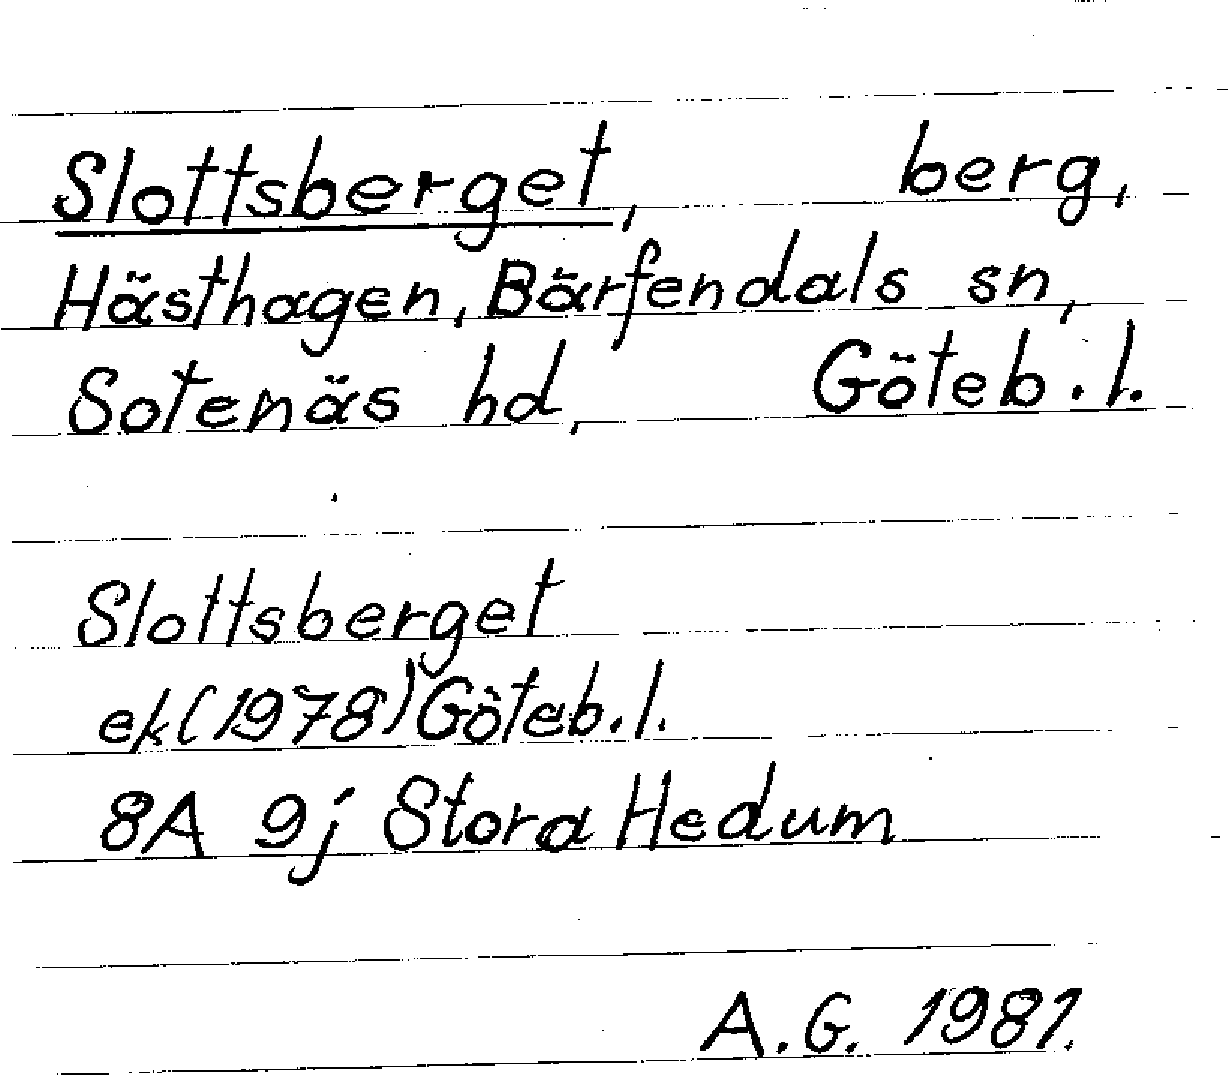 Slottsberget, berg,
Hästhagen, Bärfendals sn,
Sotenäs hd, Göteb. l.
Slottsberget
ek (1978) Göteb. l.
8A 9j Stora Hedum
A.G. 1981.